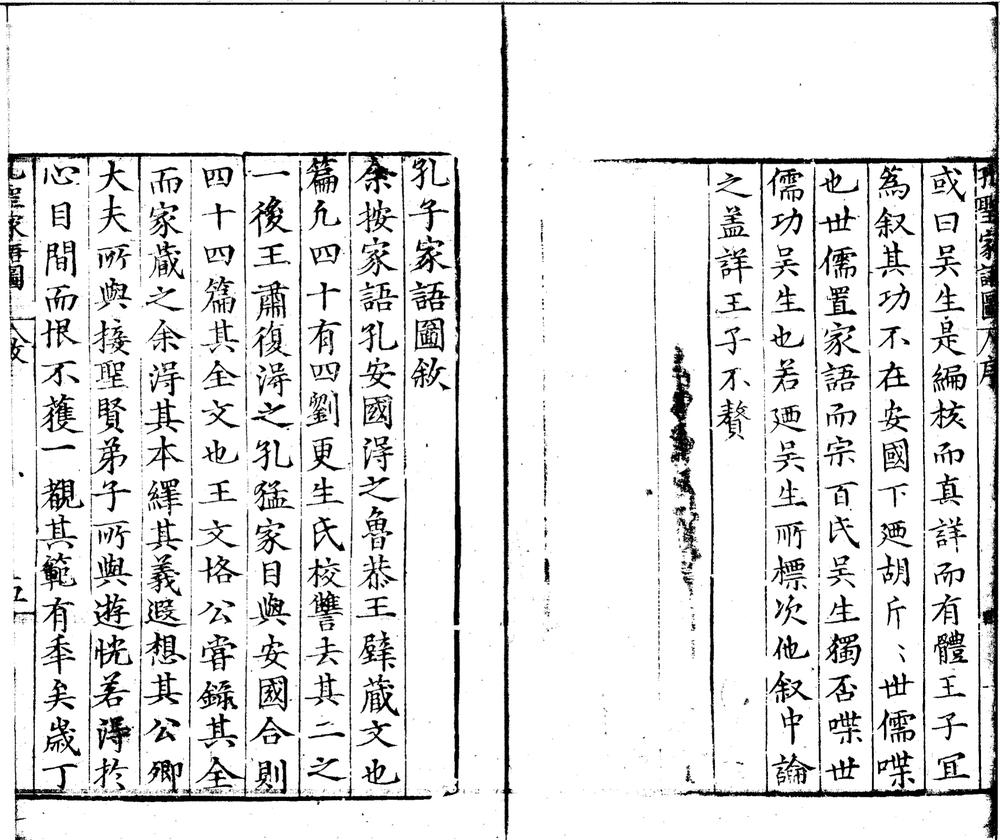 孔聖家語圖 序
或曰吴生是編核而真詳而有體王子冝
為叙其功不在安國下廼胡斤〻世儒喋
也世儒置家語而宗百氏吴生獨否喋世
儒功吴生也若廼吴生所標次他叙中論
之盖詳王子不贅
孔子家語圖敘
余按家語孔安國淂之魯恭王壁蔵文也
篇凢四十有四劉更生氏校讐去其二之
一後王肅復淂之孔猛家目與安國合則
四十四篇其全文也王文恪公甞錄其全
而家蔵之余淂其本繹其義遐想其公卿
大夫所與接聖賢弟子所與遊恍若淂於
心目間而恨不獲一覩其範有年矣歲丁
孔聖家語圖 敘 五